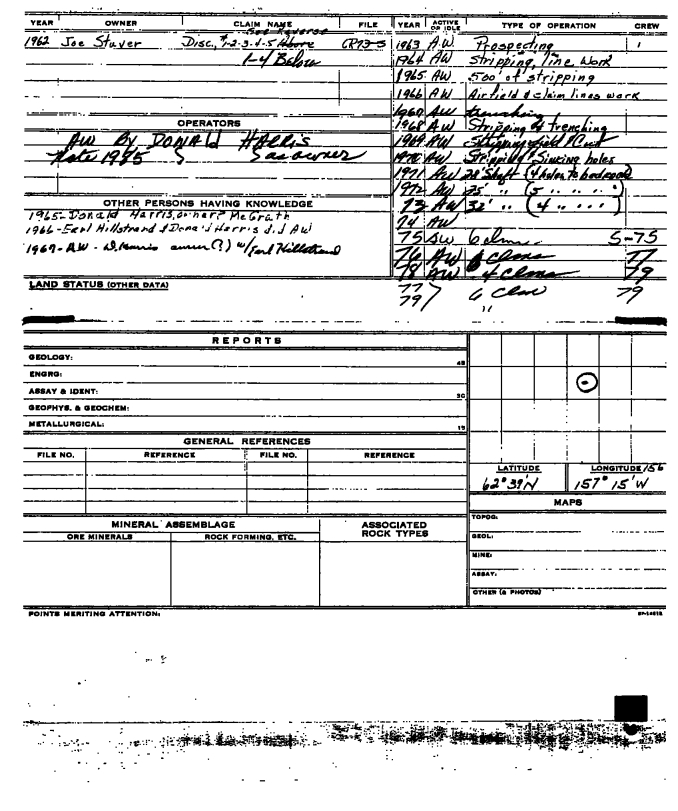 YEAR OWNER CLAIM NAME FILE YEAR ACTIVE OR IDLE TYPE OF OPERATION CREW
See Reverse
1962 Joe Stuver Disc, #1-2-3-4-5 Above
1-4 Below
1963 AW Prospecting 1
1964 AW Stripping, line work
1965 AW 500' of stripping
1966 AW Airfield & claim lines work
1967 AW trenching
1968 AW Stripping & trenching
1969 AW Stripping
1970 AW Stripping & Sinking holes
1971 AW Shaft (4 holes to bedrock)
1972 AW 25' " (5 " " " ")
73 AW 32' " (4 " " " ")
74 AW
75 AW 6 clms 5-75
76 AW 6 clms 77
78 AW 4 Clms 79
77
79 6 Clms 79
"
OPERATORS
AW By DONALD HARRIS
Note 1965 as owner
OTHER PERSONS HAVING KNOWLEDGE
1965-Donald Harris, owner? McGrath
1966-Earl Hillstrand & Donald Harris did AW
1967-AW - D. Harris owner (?) w/Earl Hillstrand
LAND STATUS (OTHER DATA)
REPORTS
GEOLOGY:
ENGRG:
ASSAY & IDENT:
GEOPHYS. & GEOCHEM:
METALLURGICAL:
GENERAL REFERENCES
FILE NO. REFERENCE FILE NO. REFERENCE
LATITUDE LONGITUDE 156
62°39'N 157° 15'W
MAPS
TOPOG:
GEOL:
MINE:
ASSAY:
OTHER (& PHOTOS)
MINERAL ASSEMBLAGE ASSOCIATED ROCK TYPES
ORE MINERALS ROCK FORMING, ETC.
POINTS MERITING ATTENTION: